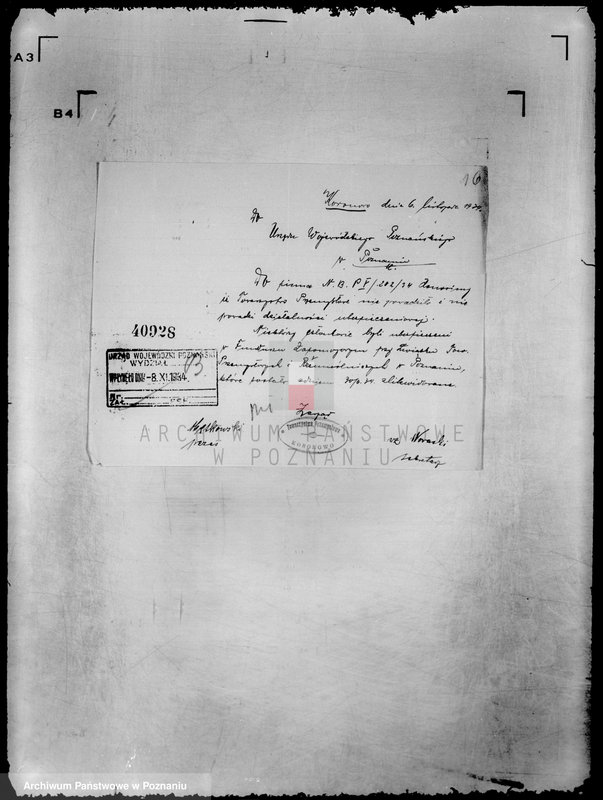 A3
B4
16
Koronowo dnia 6. listopada 1934.
Do
Urzędu Wojewódzkiego Poznańskiego
w Poznaniu
Do pisma N. B. P. donosimy
iż Towarzystwo Przemysłowe nie prowadziło i nie
prowadzi działalności ubezpieczeniowej.
Niektórzy członkowie byli ubezpieczeni
w Funduszu Zapomogowym przy Związku Tow.
Przemysłowych i Rzemieślniczych w Poznaniu,
które zostało zlikwidowane
40928
URZĄD WOJEWÓDZKI POZNAŃSKI
WYDZIAŁ
WPŁYNĘŁO DNIA -8. XI. 1934.
ZAŁ.
Zarząd
Towarzystwo Przemysłowe
KORONOWO
prezes
sekretarz
ARCHIWUM PAŃSTWOWE
W POZNANIU
Archiwum Państwowe w Poznaniu